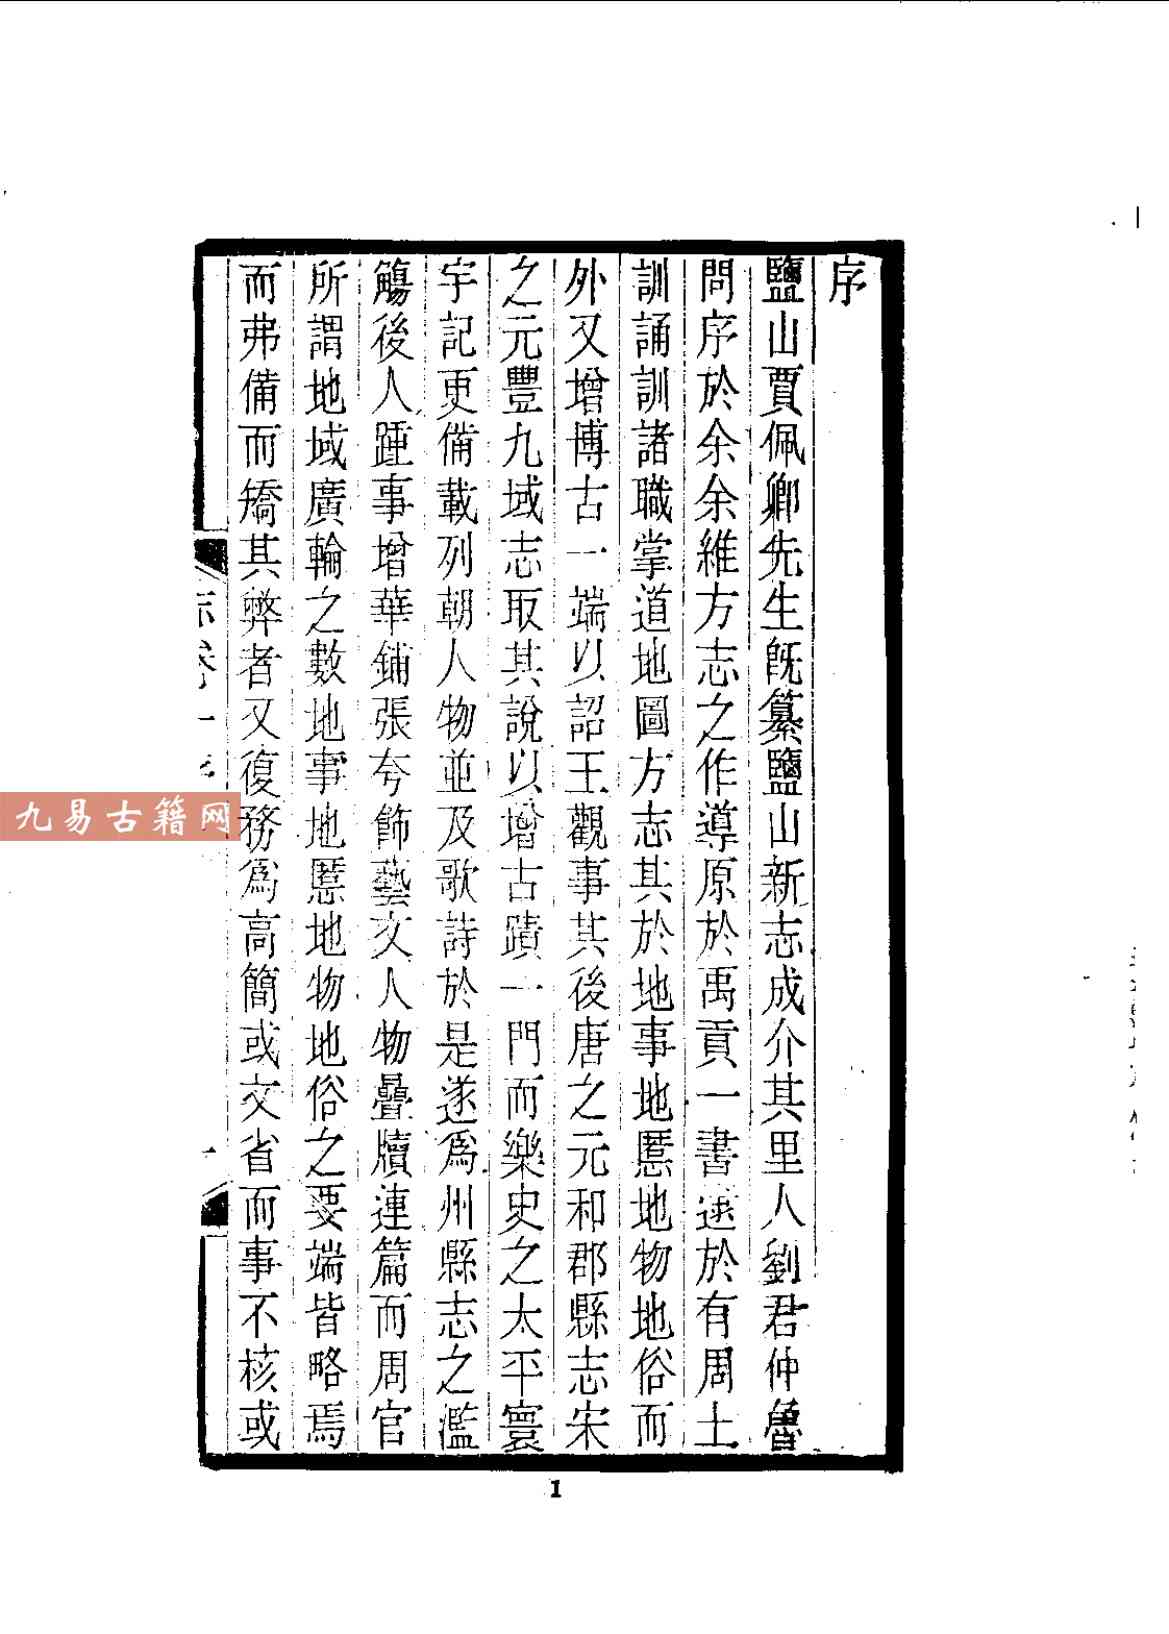 序
鹽山賈佩卿先生旣纂鹽山新志成介其里人劉君仲魯
問序於余余維方志之作導原於禹貢一書逮於有周土
訓誦訓諸職掌道地圖方志其於地事地慝地物地俗而
外又增博古一端以詔王觀事其後唐之元和郡縣志宋
之元豐九域志取其說以增古蹟一門而樂史之太平寰
宇記更備載列朝人物並及歌詩於是遂爲州縣志之濫
觴後人踵事增華鋪張夸飾藝文人物曡牘連篇而周官
所謂地域廣輪之數地事地慝地物地俗之要端皆略焉
而弗備而矯其弊者又復務爲高簡或文省而事不核或
九易古籍网
1